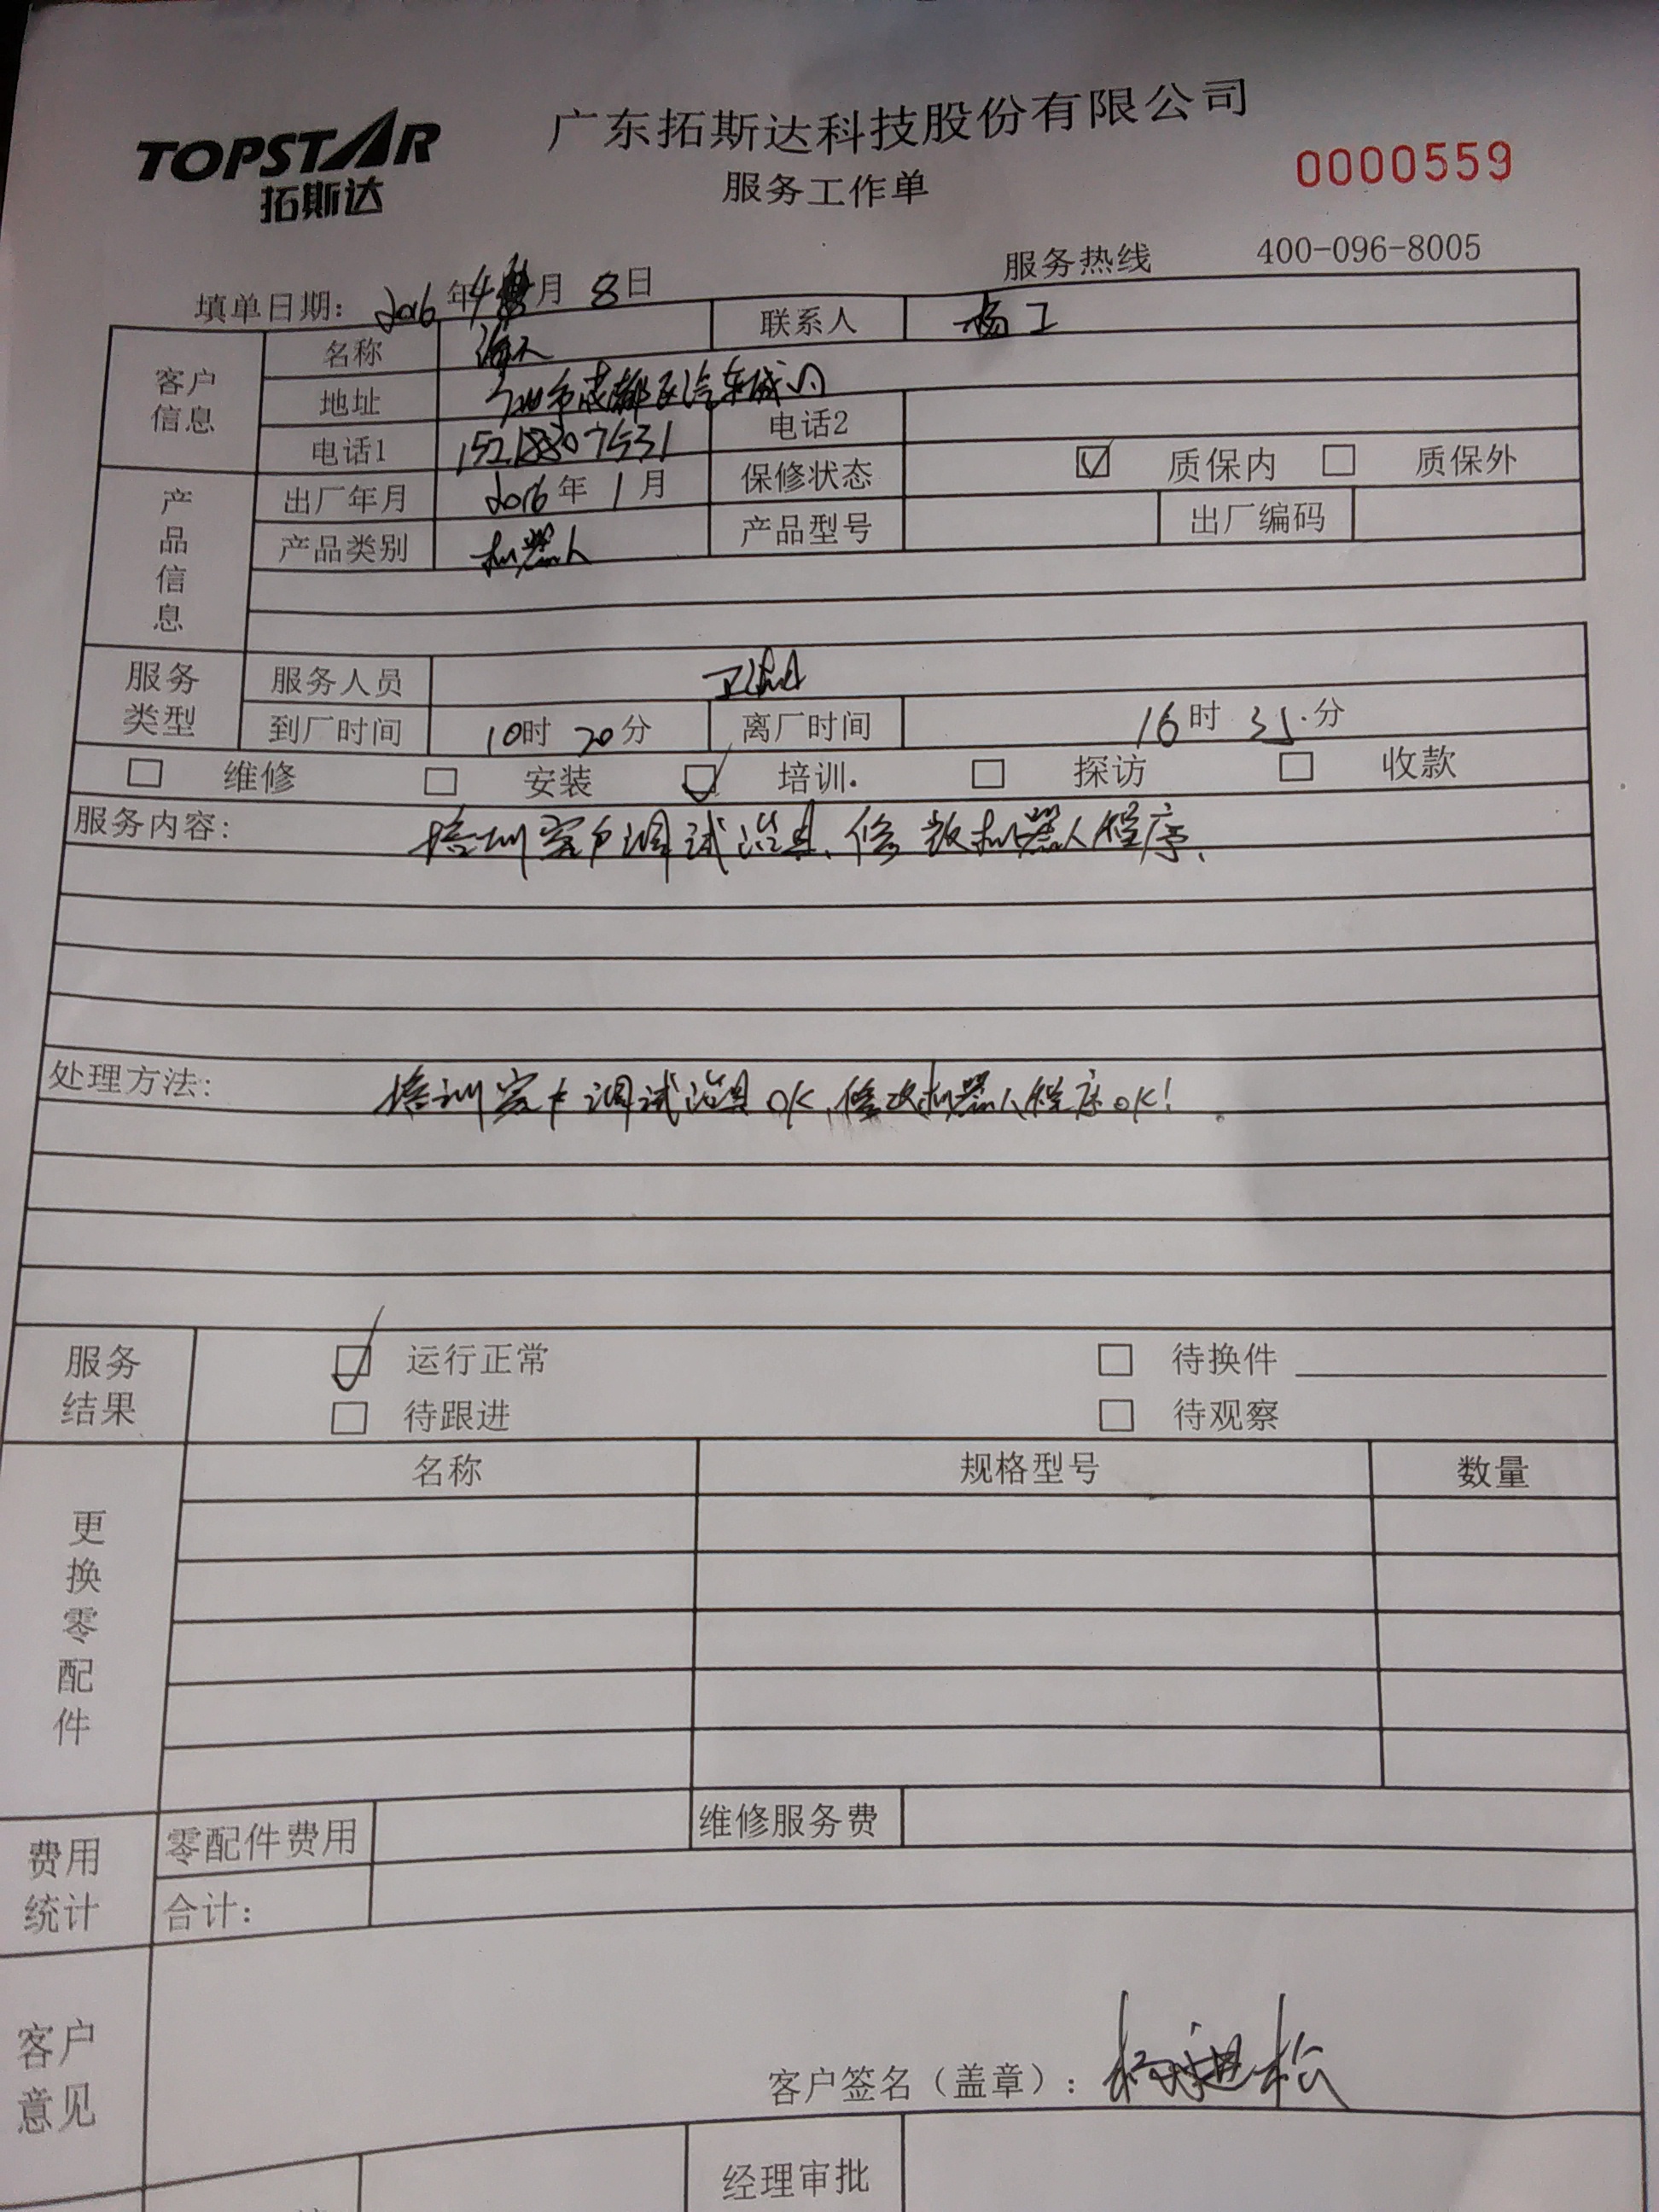 TOPSTAR
拓斯达
广东拓斯达科技股份有限公司
服务工作单
0000559
服务热线 400-096-8005
填单日期: 2016 年 4 月 8 日
客户信息
名称 海天 联系人 杨工
地址 汽车城内
电话1 15218807531 电话2
产品信息
出厂年月 2016 年 1 月 保修状态 ☑ 质保内 □ 质保外
产品类别 机器人 产品型号 出厂编码
服务类型
服务人员
到厂时间 10时 20分 离厂时间 16时 35分
□ 维修 □ 安装 ☑ 培训 □ 探访 □ 收款
服务内容: 培训客户调试治具、修改机器人程序、
处理方法: 培训客户调试治具OK、修改机器人程序OK!
服务结果
☑ 运行正常 □ 待换件
□ 待跟进 □ 待观察
更换零配件
名称 规格型号 数量
费用统计
零配件费用 维修服务费
合计:
客户意见
客户签名（盖章）:
经理审批